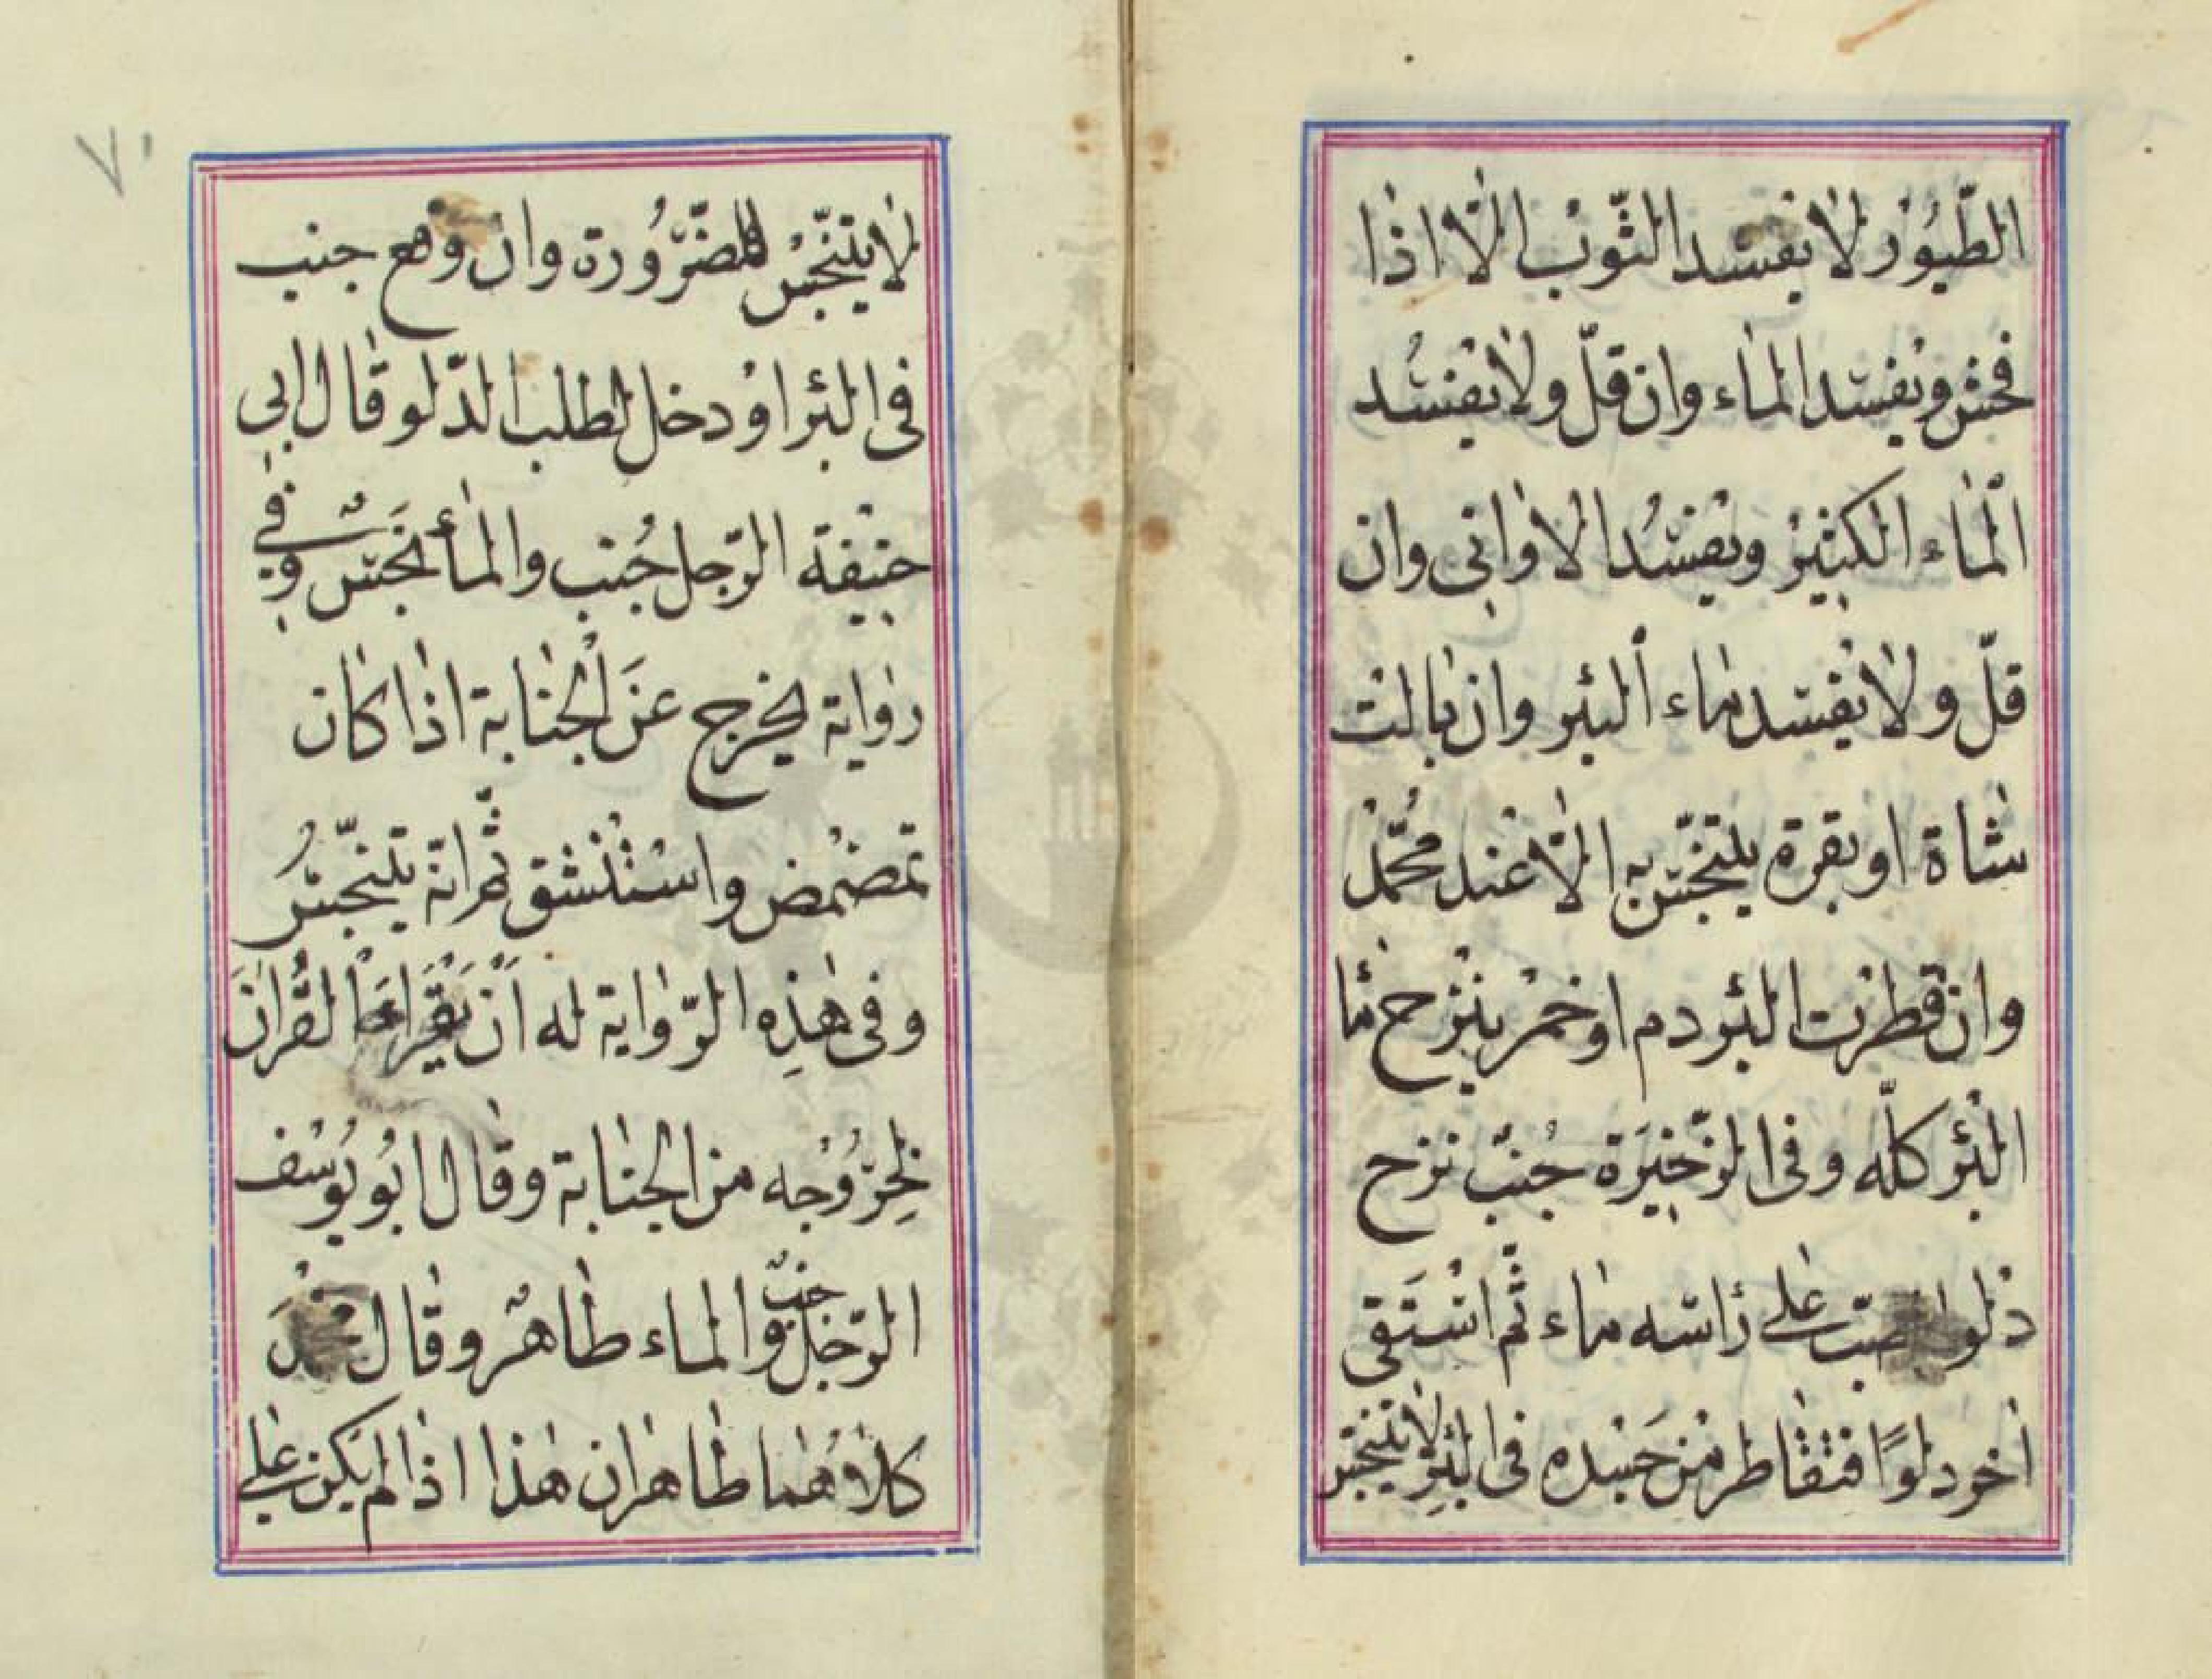 الطّيُوْر لا يفسد الثّوْب الّا اذا
فحش ويفسد الماء وان قلّ ولا يفسُد
الماء الكثير ويفسُد الاوانى وان
قلّ ولا يفسد ماء البئر وان بالت
شاة او بقرة يتنجّس به الّا عند محُمّد
وان قطرت البئر دم او خمر ينزح ماء
البئر كلّه وفى الزّخيَرة جُنبٌ نزح
دلوا صبّ على راسه ماء ثمّ استَقى
اخر دلوًا فتقاطر من جَسده فى البئِر لا يتنجّس
٧٠
لا يتنجّسُ للضّرُورة وان وقع جنب
فى البئر اوْ دخل لطلب الدّلو قال ابى
حنيفة الرّجل جُنب والماء نجَسٌ وفي
رواية يخرج عنَ الْجنابة اذا كان
تمضمض واستنشق ثمّ انّه يتنجّسُ
وفى هٰذِه الرّواية له اَنْ يَقْرَاءَ الْقُرانَ
لِخرُوُجه من الجنابة وقال ابُو يُوسف
الرّجل جنبٌ والماء طاهرٌ وقال محمّد
كلاهُما طاهران هٰذا اذا لم يكن على